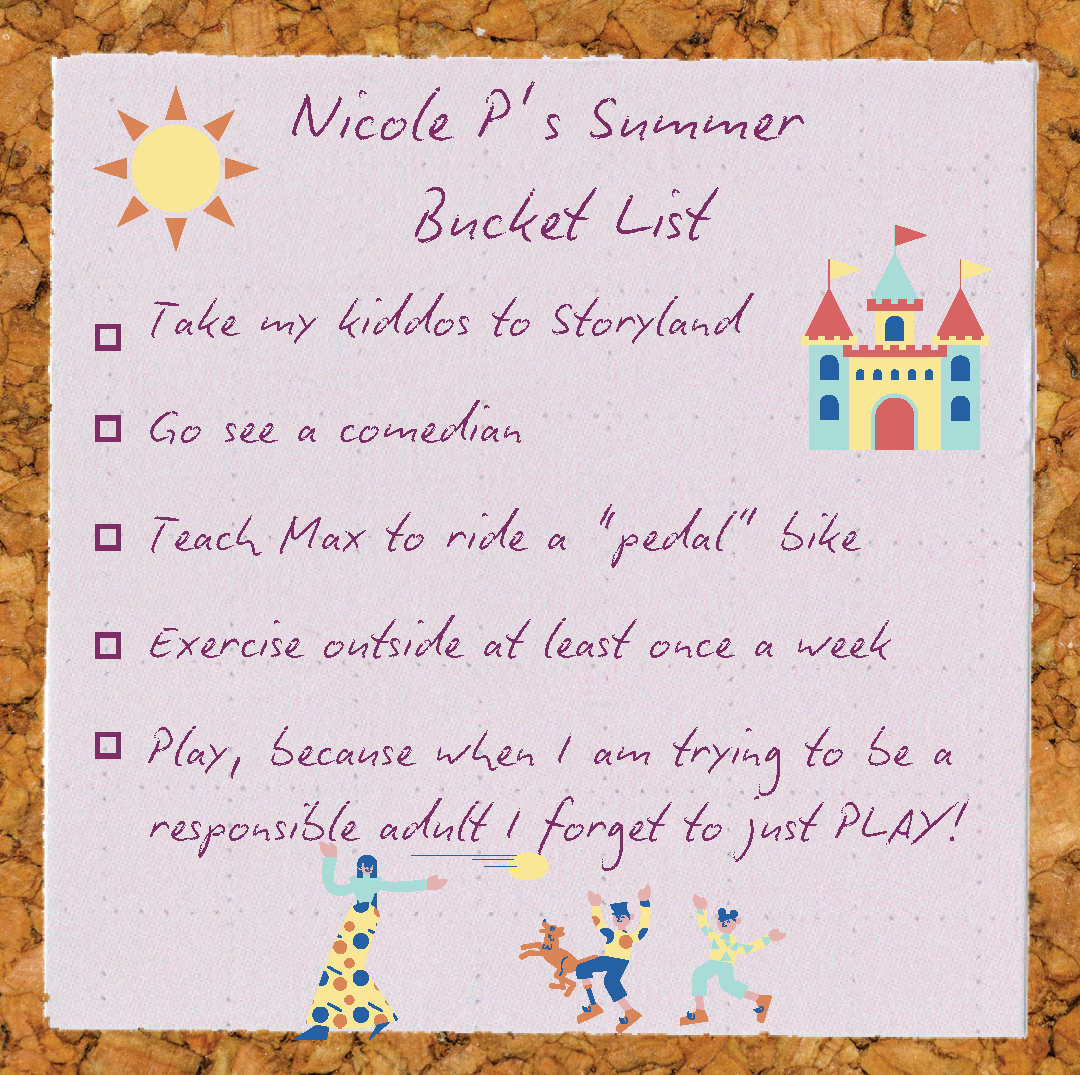 Nicole P's Summer
Bucket List
Take my kiddos to Storyland
Go see a comedian
Teach Max to ride a "pedal" bike
Exercise outside at least once a week
Play, because when I am trying to be a
responsible adult I forget to just PLAY!